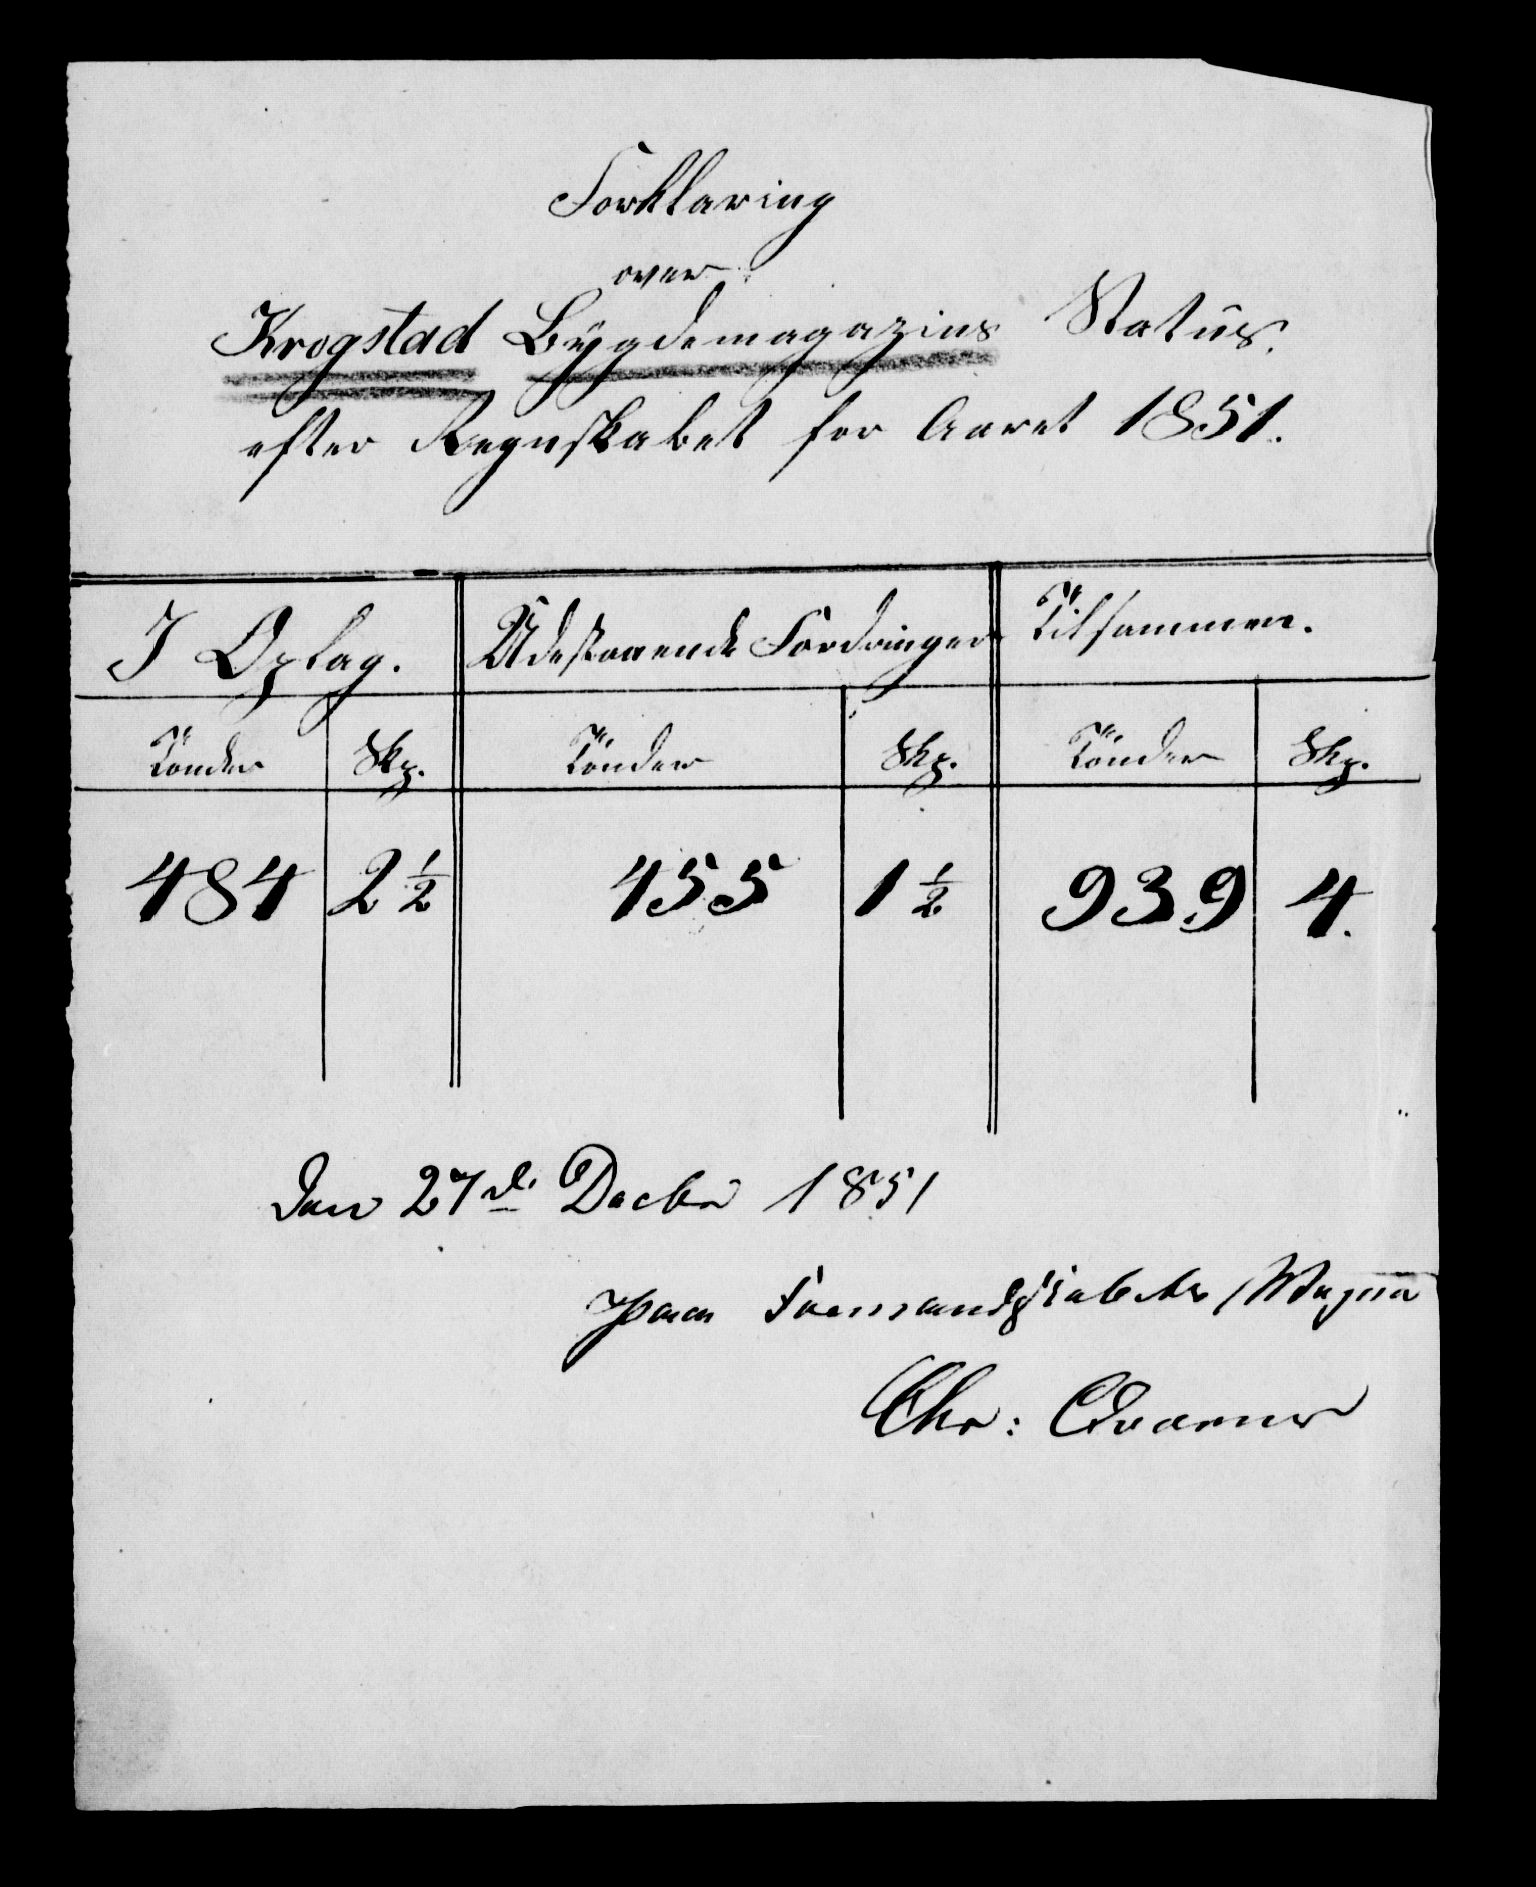 Forklaring
over
Krogstad Bÿgdemagazins Status.
efter Regnskabet for Aaret 1851.
I Oplag. Udestaaende Fordringer Tilsammen.
Tönder Skp. Tönder Skp. Tönder Skp.
484 2 1/2 455 1 1/2 939 4.
Den 27de Decbr 1851
Paa Formandskabets Vegne
Chr: